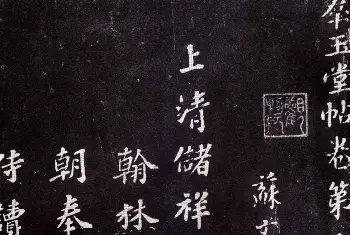 玉堂帖卷第
蘇
上清儲祥
翰林
朝奉
侍讀